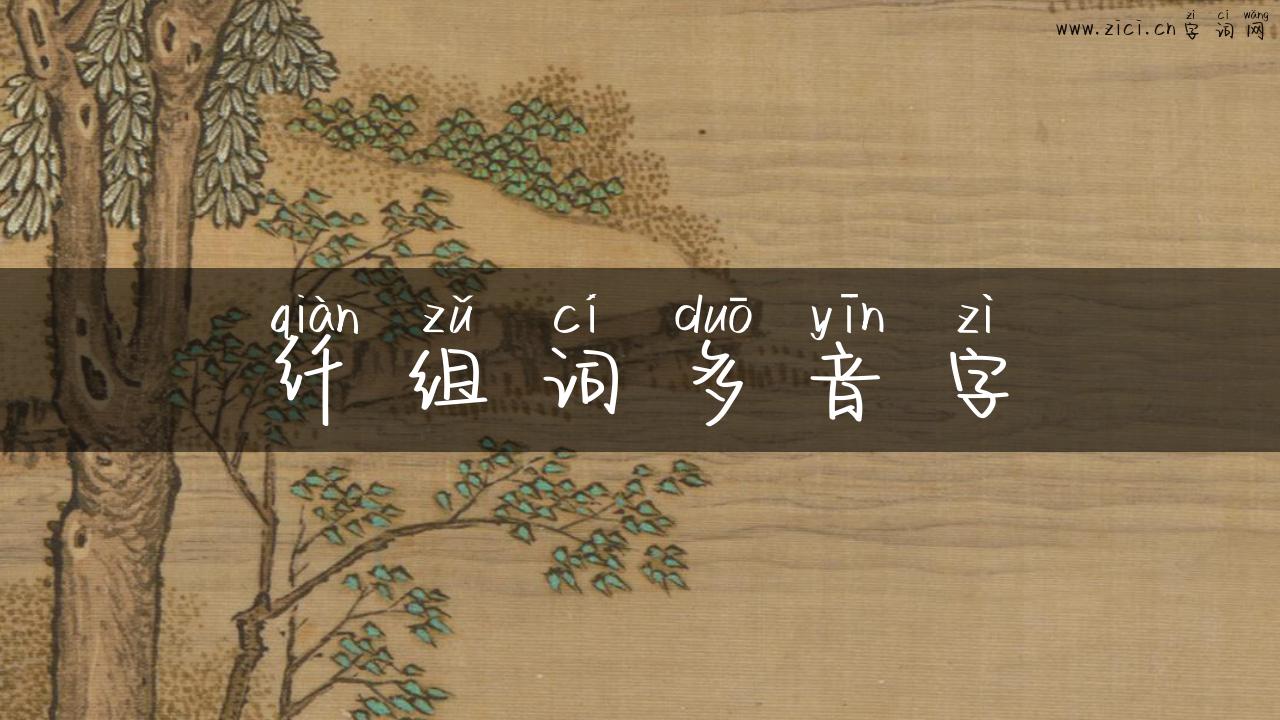 zì cí wǎng
www.zici.cn 字 词 网
qiàn zǔ cí duō yīn zì
纤 组 词 多 音 字